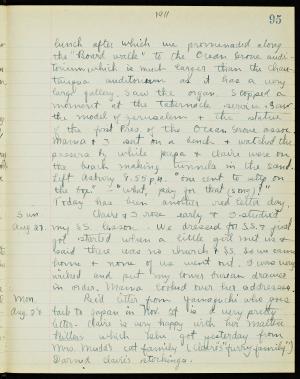 1911
95
lunch after which we promenaded along
the "Board walk" to the Ocean Grove audi-
torium, which is much larger than the Chau-
tauqua auditorium as it has a very
large gallery. Saw the organ. Stopped a
moment at the tabernacle service. Saw
the model of Jerusalem & the statue
of the first Pres. of the Ocean Grove assoc.
Mama & I sat on a bench & watched the
passers by while papa & Claire were on
the beach making tunnels in the sand.
Left Asbury 4.55 p.m. "One cent to stay on
the top" - "What, pay for that (song)!"
Today has been another red letter day.
Sun. Claire & I rose early & I studied
Aug 27. my S.S. lesson. We dressed for S.S. & just
got started when a little girl met us &
said there was no church & S.S. so we came
home & none of us went out. I was very
tired and put my lower bureau drawer
in order. Mama looked over her addresses.
Mon. Rec'd letter from Yamaguchi who goes
Aug. 28 back to Japan in Nov. It is a very pretty
letter. Claire is very happy with her Maltese
kitten which she got yesterday from
Mrs. cat family (Claire's "furry family")
Darned Claire's stockings.